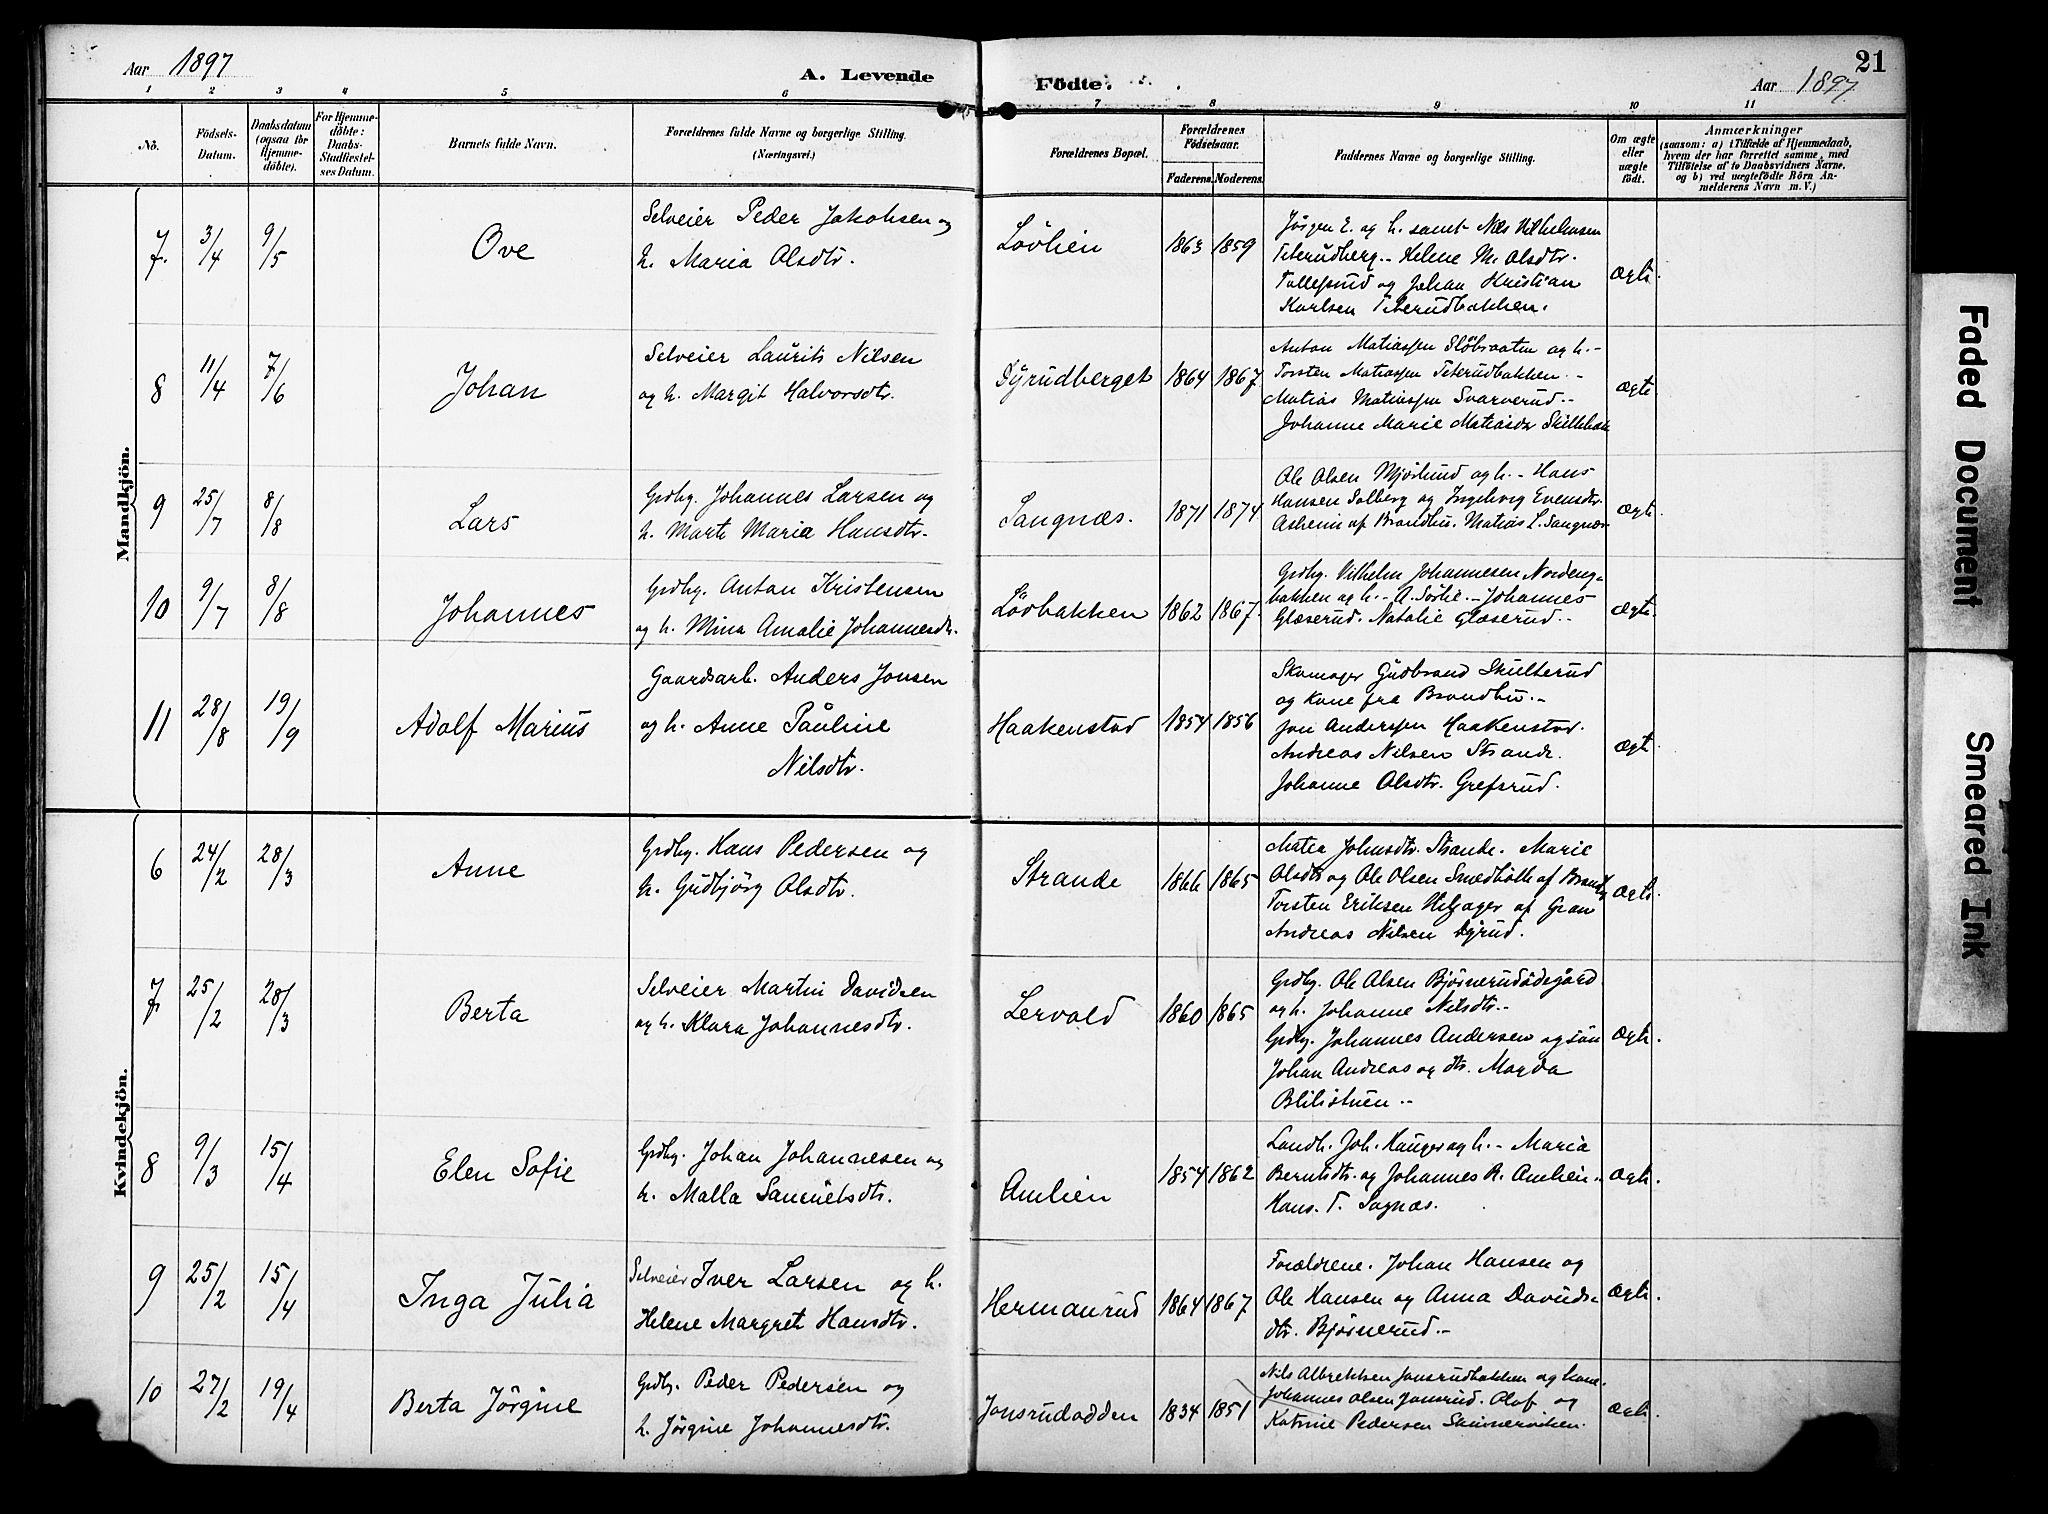 Aar 1897
A. Levende
Födte.
Aar 1897
21
1 2 3 4 5 6 7 8 9 10 11
No.
Födsels-
Datum.
Daabsdatum
(ogsaa for
Hjemme-
döbte).
For Hjemme-
döbte:
Daabs-
Stadfæstel-
ses Datum.
Barnets fulde Navn.
Forældrenes fulde Navne og borgerlige Stilling.
(Næringsvei.)
Forældrenes Bopæl.
Forældrenes
Födselsaar.
Faderens. Moderens.
Faddernes Navne og borgerlige Stilling.
Om ægte
eller
uægte
födt.
Anmærkninger
(saasom: a) i Tilfælde af Hjemmedaab,
hvem der har forrettet samme, med
Tilföielse af to Daabsvidners Navne,
og b) ved uægtefödte Börn An-
melderens Navn m.V.)
Mandkjön.
7. 3/4 9/5 Ove
Selveier Peder Jakobsen og
h. Maria Olsdtr.
Lövlien 1863 1859
Jörgen E. og h. samt Nils Vilhelmsen
Teterudberg.- Helene M. Olsdtr.
Tollefsrud og Johan Kristian
Karlsen Teterudbakken.
Ægte.
8 11/4 7/6 Johan
Selveier Laurits Nilsen
og h. Margit Halvorsdtr.
Dyrudberget 1864 1867
Anton Matiassen og h.-
Torsten Matiassen Teterudbakken.-
Matias Matiassen Svarverud.-
Johanne Marie Matiasdr
Ægte.
9 25/7 8/8 Lars
Grdbg. Johannes Larsen og
h. Marte Maria Hansdtr.
Sangnæs. 1871 1874
Ole Olsen Mjörlund og h.- Hans
Hansen Solberg og Ingeborg Evensdtr.
af Brandbu. Matias L. Sangnæs
Ægte.
10 9/7 8/8 Johannes
Grdbg. Anton Kristensen
og h. Mina Amalie Johannesdtr.
Lövbakken 1862 1867.
Grdbg. Vilhelm Johannesen Nordeng-
bakken og h.- A. Sörlie.- Johannes
Glæserud. Natalie Glæserud.-
Ægte.
11 28/8 19/9 Adolf Marius
Gaardsarb. Anders Jonsen
og h. Anne Pauline
Nilsdtr.
Haakenstad 1854 1856
Skomager Gudbrand Skulterud
og kone fra Brandbu.-
Jon Anderssen Haakenstad.
Andreas Nilsen Strande.
Johanne Olsdtr. Grefsrud.
Ægte.
Kvindekjön.
6 24/2 28/3 Anne
Grdbg. Hans Pedersen og
h. Gudbjörg Olsdtr.
Strande 1866 1865
Matea Johnsdtr. Strande. Marie
Olsdtr og Ole Olsen af Brandbu
Torsten Eriksen Helgager af Gran
Andreas Nilsen Dyrud.
Ægte.
7. 25/2 28/3 Berta
Selveier Martin Davidsen
og h. Klara Johannesdtr.
Lervold 1860 1865
Grdbg. Ole Olsen Bjørnerudödegård
og h. Johanne Nilsdtr.-
Grdbg. Johannes Andersen og sön
Johan Andreas og dtr. Magda
Blilistuen.-
Ægte.
8 9/3 15/4 Elen Sofie
Grdbg. Johan Johannesen og
h. Malla Samuelsdtr.
Amlien 1854 1862
Landh. Joh. Hauger og h.- Maria
Berntsdtr. og Johannes R. Amlien.-
Hans. T. Sagnæs.
Ægte.
9 25/2 15/4 Inga Julia
Selveier Iver Larsen og h.
Helene Margrete Hansdtr.
Hermanrud 1864 1867
Forældrene. Johan Hansen og
Ole Hansen og Anna Davids-
dtr. Bjørnerud.-
Ægte.
10 27/2 19/4 Berta Jörgine
Grdbg. Peder Pedersen og
h. Jörgine Johannesdtr.
Jonsrudodden 1834 1851
Nils Albrektsen Jonsrudbakken og kone.
Johannes Olsen Jonsrud. Olof og
Katrine Pedersen
Ægte.
Faded Document
Smeared Ink